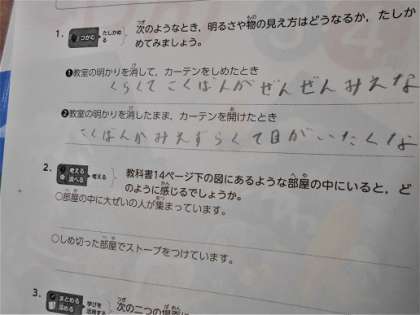 1. つかむ たしかめる 次のようなとき，明るさや物の見え方はどうなるか，たしか
めてみましょう。
❶教室の明かりを消して，カーテンをしめたとき
くらくて こくばんが ぜんぜん みえな
❷教室の明かりを消したまま，カーテンを開けたとき
こくばんがみえずらくて目がいたくな
2. 考える 調べる 考える 教科書14ページ下の図にあるような部屋の中にいると，ど
のように感じるでしょうか。
○部屋の中に大ぜいの人が集まっています。
○しめ切った部屋でストーブをつけています。
3. まとめる 深める 学びを活用する 次の二つの